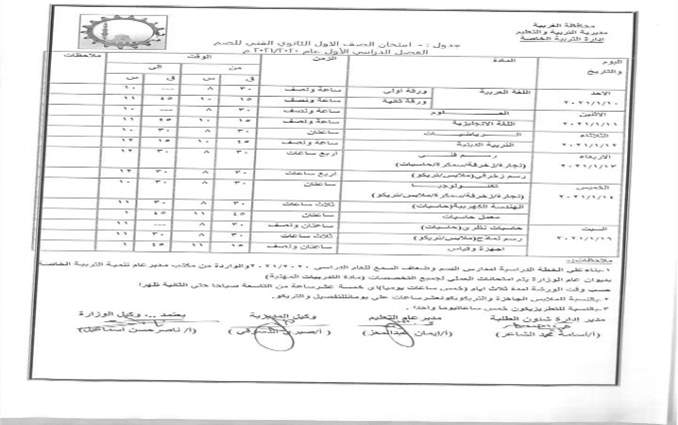 محافظة الغربية
مديرية التربية والتعليم
إدارة التربية الخاصة
جدول :- امتحان الصف الاول الثانوي الفني للصم
الفصل الدراسي الأول عام ٢٠٢١/٢٠٢٠ م
اليوم والتاريخ المادة الزمن الوقت ملاحظات
من الى
ق س ق س
الاحد اللغة العربية ورقة اولى ساعة ونصف ٣٠ ٨ --- ١٠
٢٠٢١/١/١٠ ورقة ثانية ساعة ونصف ١٥ ١٠ ٤٥ ١١
الاثنين العـــلـــوم ساعة ونصف ٣٠ ٨ --- ١٠
٢٠٢١/١/١١ اللغة الانجليزية ساعة ونصف ١٥ ١٠ ٤٥ ١١
الثلاثاء الـــرياضيـــات ساعتان ٣٠ ٨ ٣٠ ١٠
٢٠٢١/١/١٢ التربية الدينية ساعة ونصف ٤٥ ١٠ ١٥ ١٢
الاربعاء رسـم فنـــى
٢٠٢١/١/١٣ (نجارة/زخرفة/سمكرة/حاسبات) اربع ساعات ٣٠ ٨ ٣٠ ١٢
رسم زخرفي(ملابس/تريكو) اربع ساعات ٣٠ ٨ ٣٠ ١٢
الخميس تكنـــولوجيـــا ساعتان ٣٠ ٨ ٣٠ ١٠
٢٠٢١/١/١٤ (نجارة/زخرفة/سمكرة/ملابس/تريكو)
الهندسة الكهربية(حاسبات) ثلاث ساعات ٣٠ ٨ ٣٠ ١١
معمل حاسبات ساعتان ٤٥ ١١ ٤٥ ١
السبت حاسبات نظرى(حاسبات) ساعتان ونصف ٣٠ ٨ --- ١١
٢٠٢١/١/١٦ رسم نماذج(ملابس/تريكو) ثلاث ساعات ٣٠ ٨ ٣٠ ١١
اجهزة وقياس ساعتان ونصف ١٥ ١١ ٤٥ ١
ملاحظات:-
١-بناء على الخطة الدراسية لمدارس الصم وضعاف السمع للعام الدراسى ٢٠٢١/٢٠٢٠ والواردة من مكتب مدير عام تنمية التربية الخاصة
بديوان عام الوزارة يتم امتحانات العملى لجميع التخصصات (مادة التدريبات المهنية)
حسب وقت الورشة لمدة ثلاث ايام (خمس ساعات يوميا)اى خمسة عشرساعة من التاسعة صباحا حتى الثانية ظهرا
٢-بالنسبة للملابس الجاهزة والتريكو
٣-بالنسبة للتطريز يكون خمس ساعات يوما واحدا .
مدير إدارة شئون الطلبة مدير عام التعليم وكيل المديرية يعتمد ،، وكيل الوزارة
(أ/أسامة محمد الشاعر) (أ/ايمان عبدالمعز) (أ/صبرى الدسوقي) (أ/ناصر حسن اسماعيل)